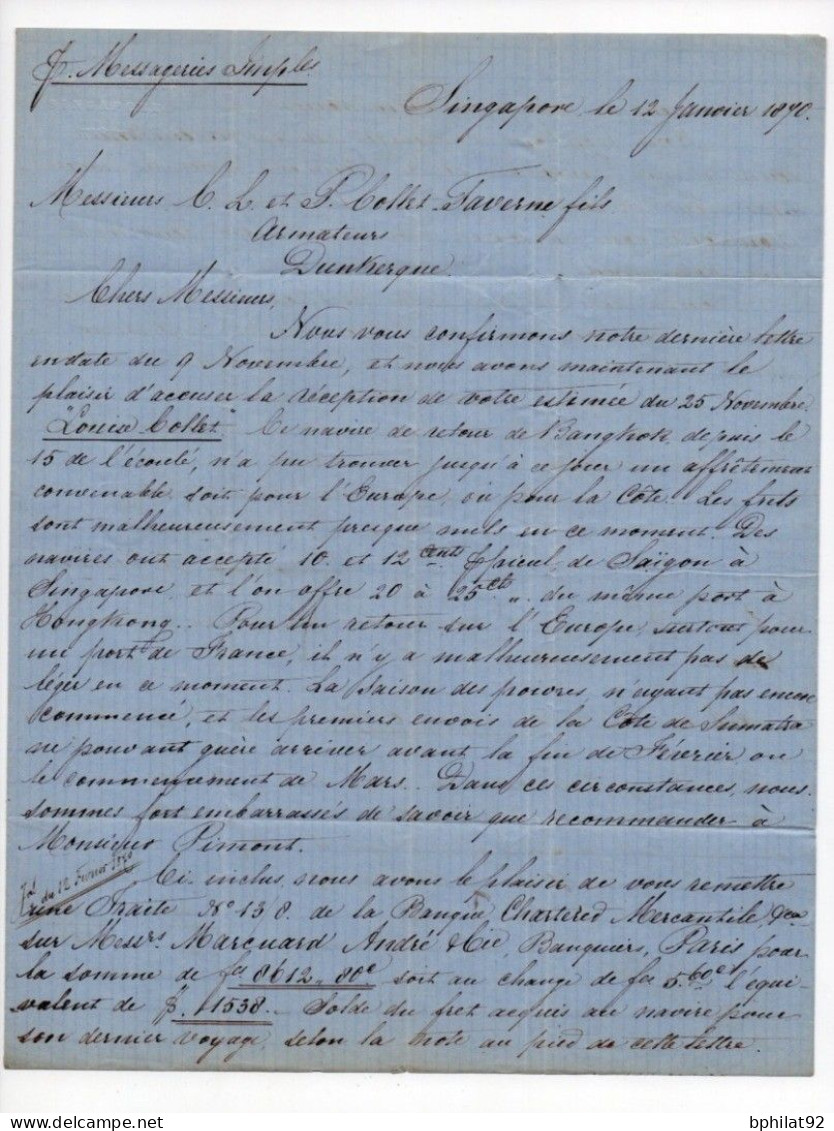 p. Messageries Imples
Singapore, le 12 Janvier 1870.
Messieurs C. L. et P. Collet-Taverne fils
Armateurs
Dunkerque.
Chers Messieurs,
Nous vous confirmons notre dernière lettre
en date du 9 Novembre, et nous avons maintenant le
plaisir d'accuser la réception de votre estimée du 25 Novembre.
"Louise Collet". Ce navire de retour de Bangkok, depuis le
15 de l'écoulé, n'a pu trouver jusqu'à ce jour un affrètement
convenable, soit pour l'Europe, ou pour la Côte. Les frêts
sont malheureusement presque nuls en ce moment. Des
navires ont accepté 10 et 12 cents p picul, de Saïgon à
Singapore, et l'on offre 20 à 25 cts " du même port à
Hongkong.. Pour un retour sur l'Europe, surtout pour
un port de France, il n'y a malheureusement pas de
léger en ce moment. La saison des poivres, n'ayant pas encore
commencé, et les premiers envois de la Côte de Sumatra
ne pouvant guère arriver avant la fin de Février ou
le commencement de Mars.. Dans ces circonstances, nous
sommes fort embarrassés de savoir que recommander à
Monsieur Pimont.
du 12 Février 1870
Ci-inclus, nous avons le plaisir de vous remettre
une Traite No 13/8. de la Banque Chartered Mercantile,
sur Messrs Marcuard André & Cie, Banquiers, Paris pour
la somme de fcs 8612 " 80c soit au change de fcs 5.60c l'équi-
valent de $. 1538.. Solde du fret acquis au navire pour
son dernier voyage, selon la note au pied de cette lettre.
bphilat92